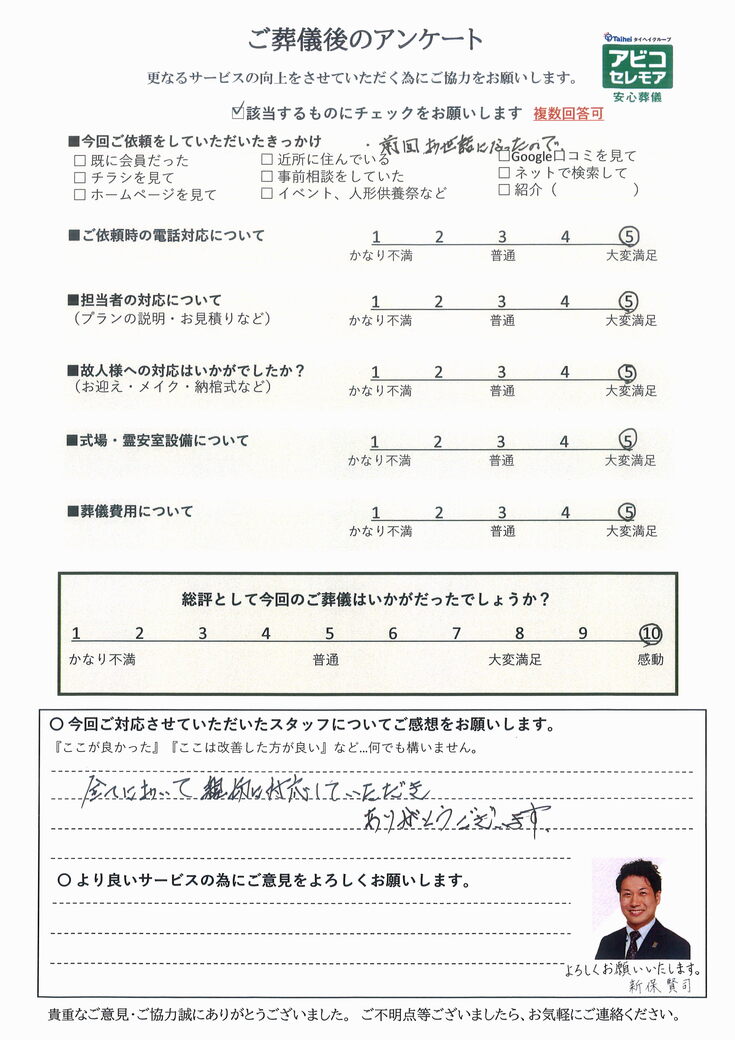 ご葬儀後のアンケート
Taihei タイヘイグループ
アビコ
セレモア
安心葬儀
更なるサービスの向上をさせていただく為にご協力をお願いします。
☑該当するものにチェックをお願いします 複数回答可
■今回ご依頼をしていただいたきっかけ
・前回お世話になったので。
□ 既に会員だった □ 近所に住んでいる □Google口コミを見て
□ チラシを見て □ 事前相談をしていた □ ネットで検索して
□ ホームページを見て □ イベント、人形供養祭など □ 紹介（ ）
■ご依頼時の電話対応について 1 2 3 4 5
かなり不満 普通 大変満足
■担当者の対応について 1 2 3 4 5
（プランの説明・お見積りなど） かなり不満 普通 大変満足
■故人様への対応はいかがでしたか？ 1 2 3 4 5
（お迎え・メイク・納棺式など） かなり不満 普通 大変満足
■式場・霊安室設備について 1 2 3 4 5
かなり不満 普通 大変満足
■葬儀費用について 1 2 3 4 5
かなり不満 普通 大変満足
総評として今回のご葬儀はいかがだったでしょうか？
1 2 3 4 5 6 7 8 9 10
かなり不満 普通 大変満足 感動
〇 今回ご対応させていただいたスタッフについてご感想をお願いします。
『ここが良かった』『ここは改善した方が良い』など…何でも構いません。
全てにおいて親切に対応していただき
ありがとうございます。
〇 より良いサービスの為にご意見をよろしくお願いします。
よろしくお願いいたします。
新保賢司
貴重なご意見・ご協力誠にありがとうございました。 ご不明点等ございましたら、お気軽にご連絡ください。